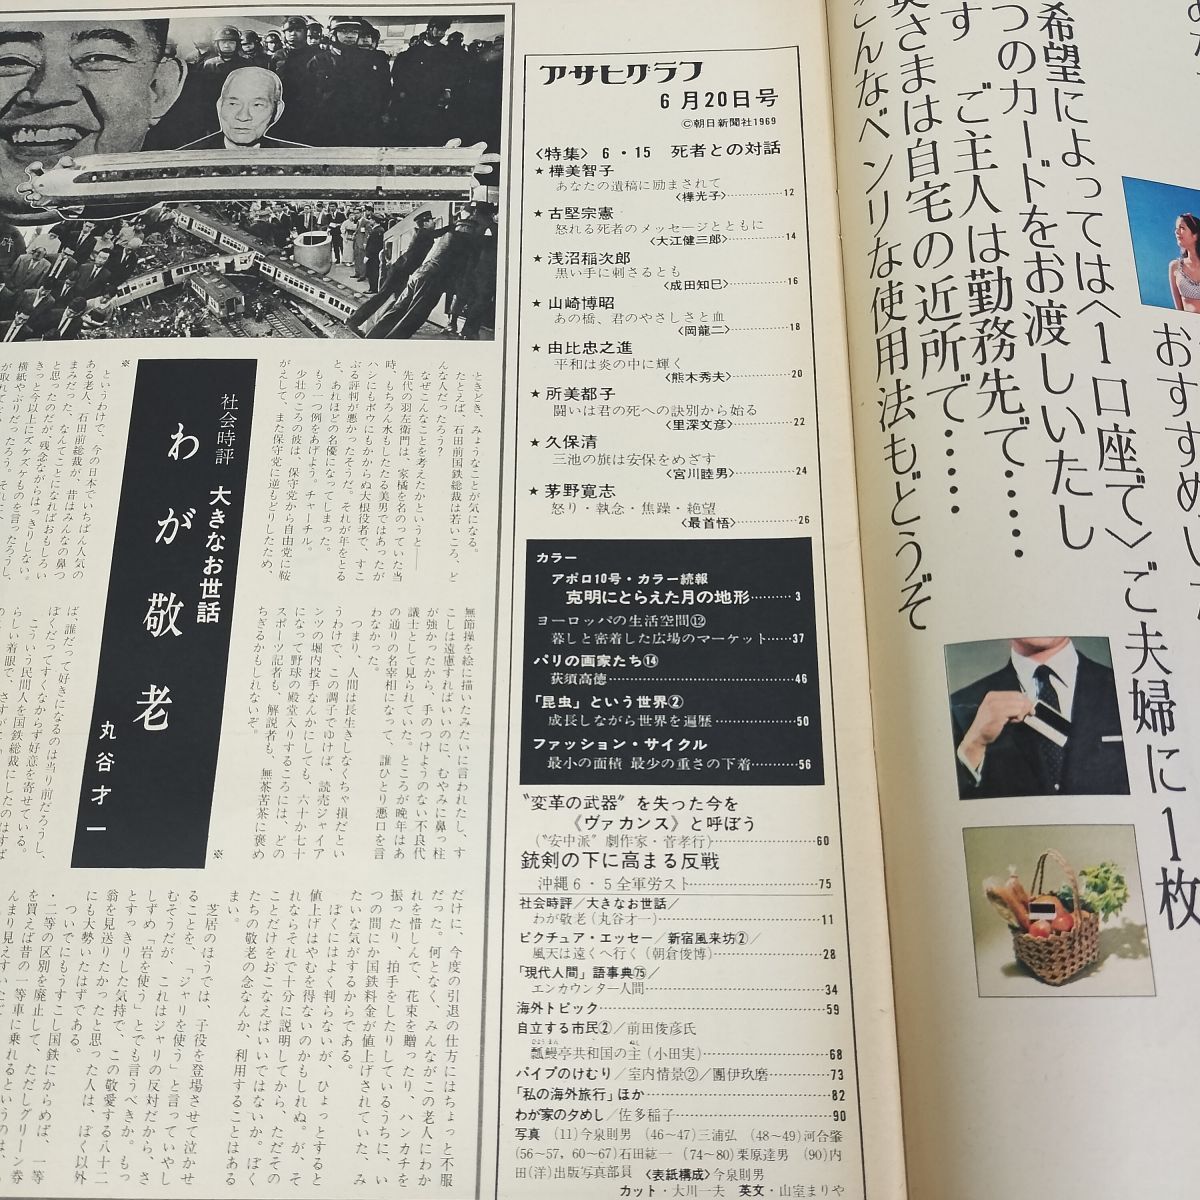 アサヒグラフ
6月20日号
©朝日新聞社1969
〈特集〉 6・15 死者との対話
★樺美智子
あなたの遺稿に励まされて
〈樺光子〉…………12
★古堅宗憲
怒れる死者のメッセージとともに
〈大江健三郎〉…………14
★浅沼稲次郎
黒い手に刺さるとも
〈成田知巳〉…………16
★山崎博昭
あの橋、君のやさしさと血
〈岡龍二〉…………18
★由比忠之進
平和は炎の中に輝く
〈熊木秀夫〉…………20
★所美都子
闘いは君の死への訣別から始る
〈里深文彦〉…………22
★久保清
三池の旗は安保をめざす
〈宮川睦男〉…………24
★茅野寛志
怒り・執念・焦躁・絶望
〈最首悟〉…………26
カラー
アポロ10号・カラー続報
克明にとらえた月の地形…………3
ヨーロッパの生活空間⑫
暮しと密着した広場のマーケット……37
パリの画家たち⑭
荻須高徳…………46
「昆虫」という世界②
成長しながら世界を遍歴…………50
ファッション・サイクル
最小の面積 最少の重さの下着………56
〝変革の武器〟を失った今を
《ヴァカンス》と呼ぼう
(〝安中派〟劇作家・菅孝行)…………60
銃剣の下に高まる反戦
沖縄6・5全軍労スト…………75
社会時評/大きなお世話/
わが敬老(丸谷才一)…………11
ピクチュア・エッセー/新宿風来坊②/
風天は遠くへ行く(朝倉俊博)…………28
「現代人間」語事典㊆/
エンカウンター人間…………34
海外トピック…………59
自立する市民②/前田俊彦氏
瓢鰻亭共和国の主(小田実)…………68
パイプのけむり/室内情景②/團伊玖磨…………73
「私の海外旅行」ほか…………82
わが家の夕めし/佐多稲子…………90
写真 (11)今泉則男 (46〜47)三浦弘 (48〜49)河合肇
(56〜57, 60〜67)石田紘一 (74〜80)栗原達男 (90)内
田(洋)出版写真部員 〈表紙構成〉今泉則男
カット・大川一夫 英文・山室まりや
希望によっては〈1口座で〉ご夫婦に1枚
つのカードをお渡しいたし
す ご主人は勤務先で……
さまは自宅の近所で……
こんなベンリな使用法もどうぞ
社会時評 大きなお世話
わが敬老
丸谷才一
ときどき、みょうなことが気になる。
たとえば、石田前国鉄総裁は若いころ、ど
んな人だったろう?
なぜこんなことを考えたかというと――
先代の羽左衛門は、家橘を名のっていた当
時、もちろん水もしたたる美男ではあったが
ハシにもボウにもかからぬ大根役者で、すこ
ぶる評判が悪かったそうだ。それが年をとる
と、あれほどの名優になってしまった。
もう一つ例をあげよう。チャーチル。
少壮のころの彼は、保守党から自由党に鞍
がえして、また保守党に逆もどりしたため、
無節操を絵に描いたみたいに言われたし、す
こしは遠慮すればいいのに、むやみに鼻っ柱
が強かったから、手のつけようのない不良代
議士として見られていた。ところが晩年はあ
の通りの名宰相になって、誰ひとり悪口を言
わなかった。
つまり、人間は長生きしなくちゃ損だとい
うわけで、この調子でゆけば、読売ジャイア
ンツの堀内投手なんかにしても、六十か七十
になって野球の殿堂入りするころには、どの
スポーツ記者も、解説者も、無茶苦茶に褒め
ちぎるかもしれないぞ。
※
というわけで、今の日本でいちばん人気の
ある老人、石田前総裁が、昔はみんなの鼻つ
まみだった、なんてことになればおもしろい
と思ったのだが、残念ながらはっきりしない。
きっと今以上にズケズケものを言ったろうし、
ば、誰だって好きになるのは当り前だろうし、
ぼくだってすくなからず好意を寄せている。
こういう民間人を国鉄総裁にしたのはすば
※
だけに、今度の引退の仕方にはちょっと不服
だった。何となく、みんながこの老人にわか
れを惜しんで、花束を贈ったり、ハンカチを
振ったり、拍手をしたりしているうちに、い
つの間にか国鉄料金が値上げされていた、み
たいな気がするからである。
ぼくにはよく判らないが、ひょっとすると
値上げはやむを得ないのかもしれぬ。が、そ
れならそれで十分に説明してから、ただその
ことだけをおこなえばいいではないか。ぼく
たちの敬老の念なんか、利用することはある
まい。
芝居のほうでは、子役を登場させて泣かせ
ることを、「ジャリを使う」と言っていやし
むそうだが、これはジャリの反対だから、さ
しずめ「岩を使う」とでも言うべきか。もっ
とすっきりした気持で、この敬愛する八十二
翁を見送りたかったと思った人は、ぼく以外
にも大勢いたはずである。
ついでにもうすこし国鉄にからめば、一等
・二等の区別を廃止して、ただしグリーン券
を買えば昔の一等車に乗れるというのは、